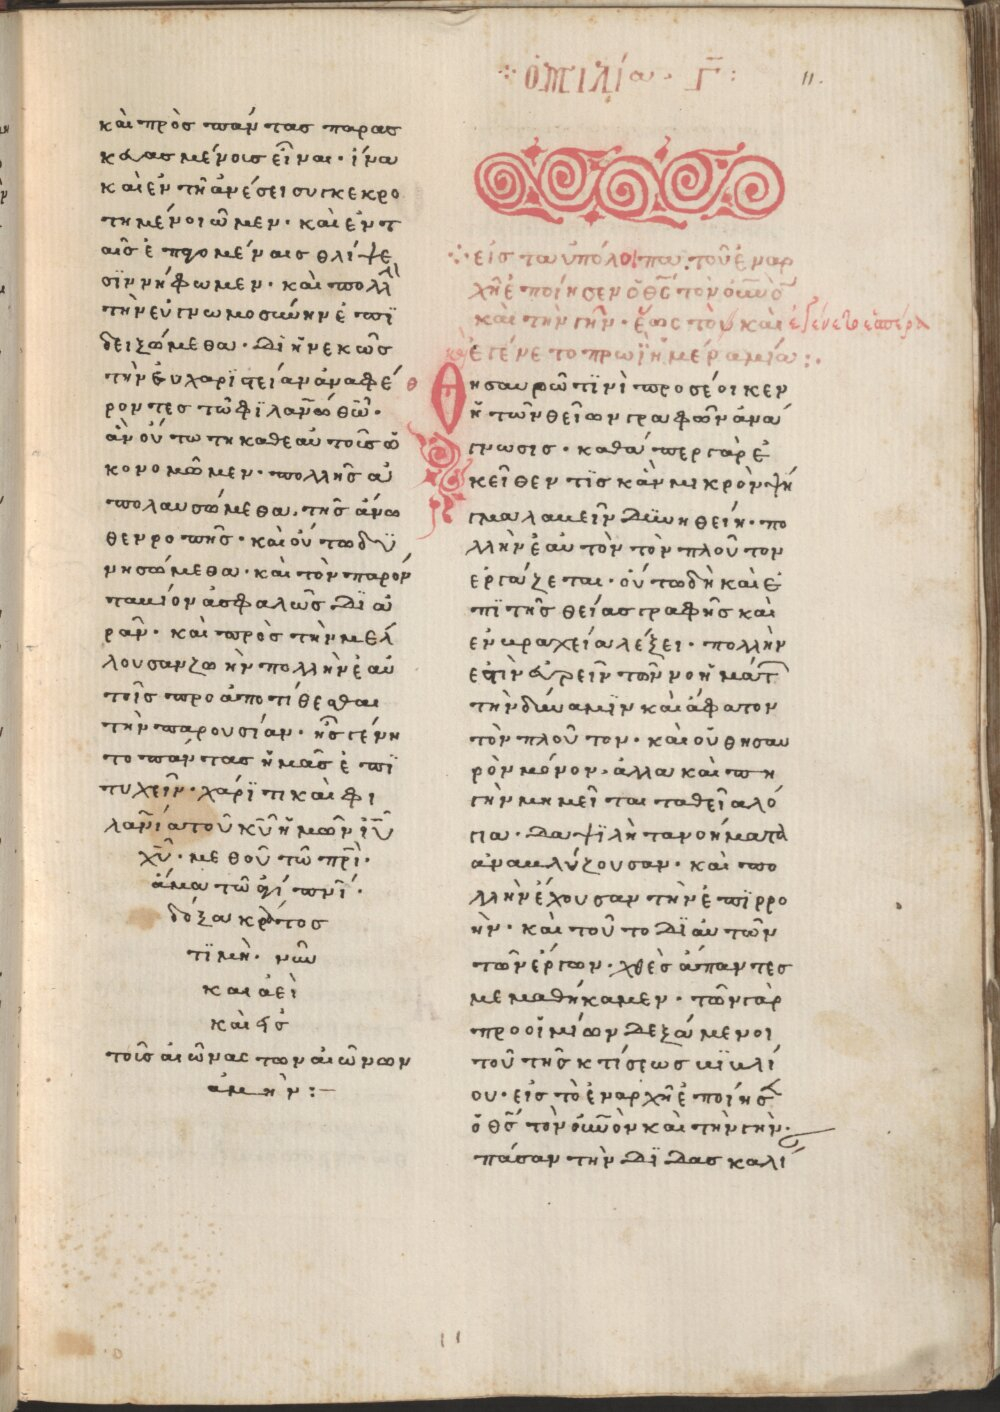 ὁμιλία· Γ̅:
11.
καὶ πρὸς πάντας παρασ
κευασμένοις εἶναι· ἵνα
καὶ ἐν τῆ ἀνέσει συγκεκρο
τημένοι ὦμεν· καὶ ἐν τ
αῖς ἑπομέναις θλίψε
σϊν νήφωμεν· καὶ πολλὴ
τὴν εὐγνωμοσύνην ἐπϊ
δειξώμεθα· διηνεκῶς
τὴν εὐχαρϊστείαν ἀναφέ
ροντες τῶ φϊλαν̅ω θ̅ω̅·
ἂν οὕτω τὴ καθεαυτοῖς οἰ
κονομῶμεν· πολλῆς ἀ
πολαυσώμεθα, τῆς ἄνω
θεν ροπῆς· καὶ οὕτω δυ
νησώμεθα· καὶ τὸν παρόν
τα βίον ἀσφαλῶς διᾶ
ραν̑· καὶ πρὸς τὴν μέλ
λουσαν ζωὴν πολλὴν ἑαυ
τοῖς προαποτίθεσθαι
τὴν παρουσίαν· ἧς γένη
το πάντας ἡμᾶς ἐπϊ
τυχεῖν· χάρϊτι καὶ φι
λαν̅ία τοῦ κ̅υ̅ ἡμῶν ι̅υ̅
χ̅υ̅· μεθ οὗ τῶ πρ̅ὶ·
ἅμα τῶ ἁγί πν̅ί·
δόξα κράτος
τϊμὴ· νῦν
καὶ ἀεὶ
καὶ εἰς
τοῖς αἰῶνας τῶν αἰώνων
ἀμήν:—
εἰς τὰ ὑπόλοιπα· τοῦ ἐν αρ
χῆ ἐποίησεν ὁ θ̅ς̅ τὸν οὐ̅ν̅ο̅
καὶ τὴν γῆν· ἕως τὸ, καὶ ἐγένετο ἑσπέρα
ἐγένετο πρωϊ ἡμέρα μία:·
θησαυρῶ τϊνὶ προσέοικεν
ἡ τῶν θείων γραφῶν ἀνά
γνωσις· καθάπερ γὰρ ἐ
κεῖθεν τϊς κἂν μικρὸν ψή
γμα λαβεῖν δυνηθείη· πο
λλὴν ἑαυτὸν τὸν πλοῦτον
ἐργάζεται· οὕτω δὴ καὶ ἐ
πϊ τῆς θείας γραφῆς καὶ
ἐν βραχεία λέξει· πολλὴν
ἐστὶν εὑρεῖν τῶν νοημάτ
τὴν δύναμϊν καὶ ἄφατον
τὸν πλοῦτον· καὶ οὐ θησαυ
ρὸν μόνον· ἀλλα καὶ πη
γὴν μιμεῖται τα θεῖα λό
για· δαψϊλὴ τα νοήματα
ἀναβλύζουσαν· καὶ πο
λλὴν ἔχουσαν τὴν ἐπϊρρο
ὴν· καὶ τοῦτο δϊ αὐτῶν
τῶν ἔργων· χθὲς ἅπαντες
μεμαθήκαμεν· τῶν γὰρ
προοιμίων δεξάμενοι
τοῦ τῆς κτίσεως βϊβλί
ου· εἰς τὸ ἐν αρχῆ ἐποίησ
ὁ θ̅ς̅ τὸν οὐ̅ν̅ὸν καὶ τὴν γῆν·
πάσαν τὴν δϊδασκαλί
11